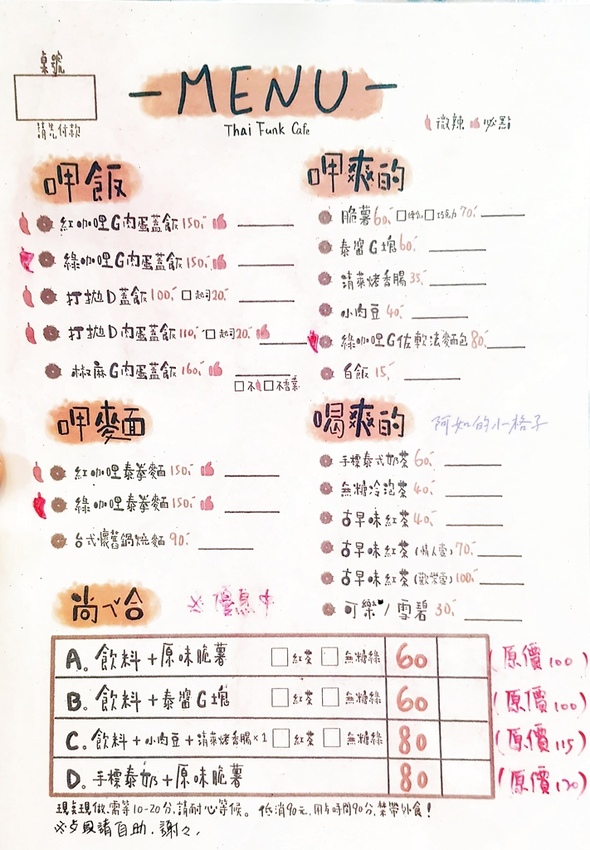 桌號
請先付款
-MENU-
Thai Funk Cafe
微辣 必點
呷飯
紅咖哩G肉蛋蓋飯150.-
綠咖哩G肉蛋蓋飯150.-
打拋D蓋飯100.- □起司20.-
打拋D肉蛋蓋飯110.- □起司20.-
椒麻G肉蛋蓋飯160.-
□不 □不香菜
呷爽的
脆薯60.- □ □巧克力70.-
泰醬G塊60.-
清萊烤香腸35.-
小肉豆40.-
綠咖哩G佐軟法麵包80.-
白飯15.-
呷麵
紅咖哩泰拳麵150.-
綠咖哩泰拳麵150.-
台式懷舊鍋燒麵90.-
喝爽的 阿如的小格子
手標泰式奶茶60.-
無糖冷泡茶40.-
古早味紅茶40.-
古早味紅茶(情人壺)70.-
古早味紅茶(歡樂壺)100.-
可樂/雪碧30.-
尚ㄟ合 ※優惠中
A。飲料+原味脆薯 □紅茶 □無糖綠 60 (原價100)
B。飲料+泰醬G塊 □紅茶 □無糖綠 60 (原價100)
C。飲料+小肉豆+清萊烤香腸×1 □紅茶 □無糖綠 80 (原價115)
D。手標泰奶+原味脆薯 80 (原價120)
現點現做,需等10-20分,請耐心等候。低消90元,用餐時間90分,禁帶外食!
※餐具請自助,謝謝